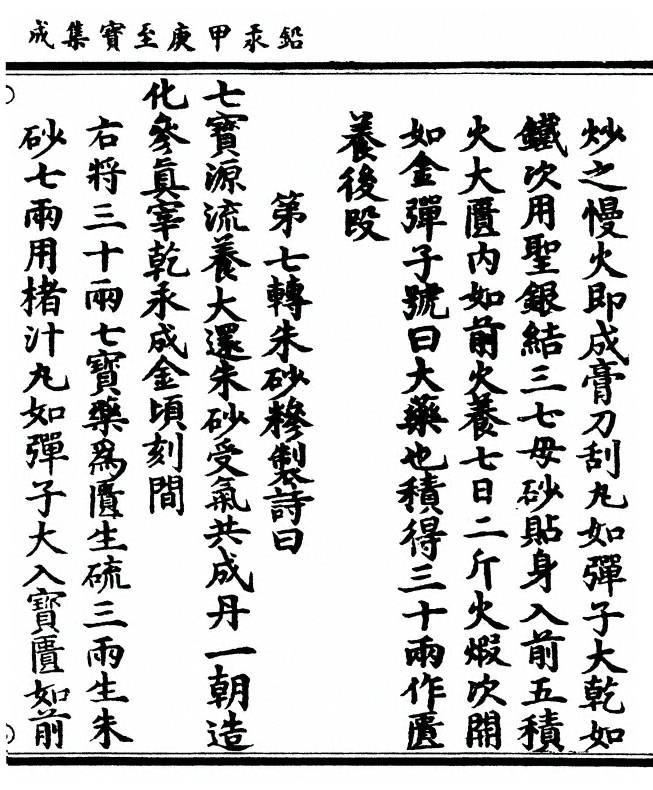 鉛汞甲庚至寶集成
炒之慢火即成膏刀刮丸如彈子大乾如
鐵次用聖銀結三七母砂貼身入前五積
火大匱内如前火養七日二斤火煆次開
如金彈子號曰大藥也積得三十兩作匱
養後段
第七轉朱砂糝製詩曰
七寶源流養大還朱砂受氣共成丹一朝造
化參眞宰乾汞成金頃刻間
右將三十兩七寶藥爲匱生硫三兩生朱
砂七兩用楮汁丸如彈子大入寶匱如前